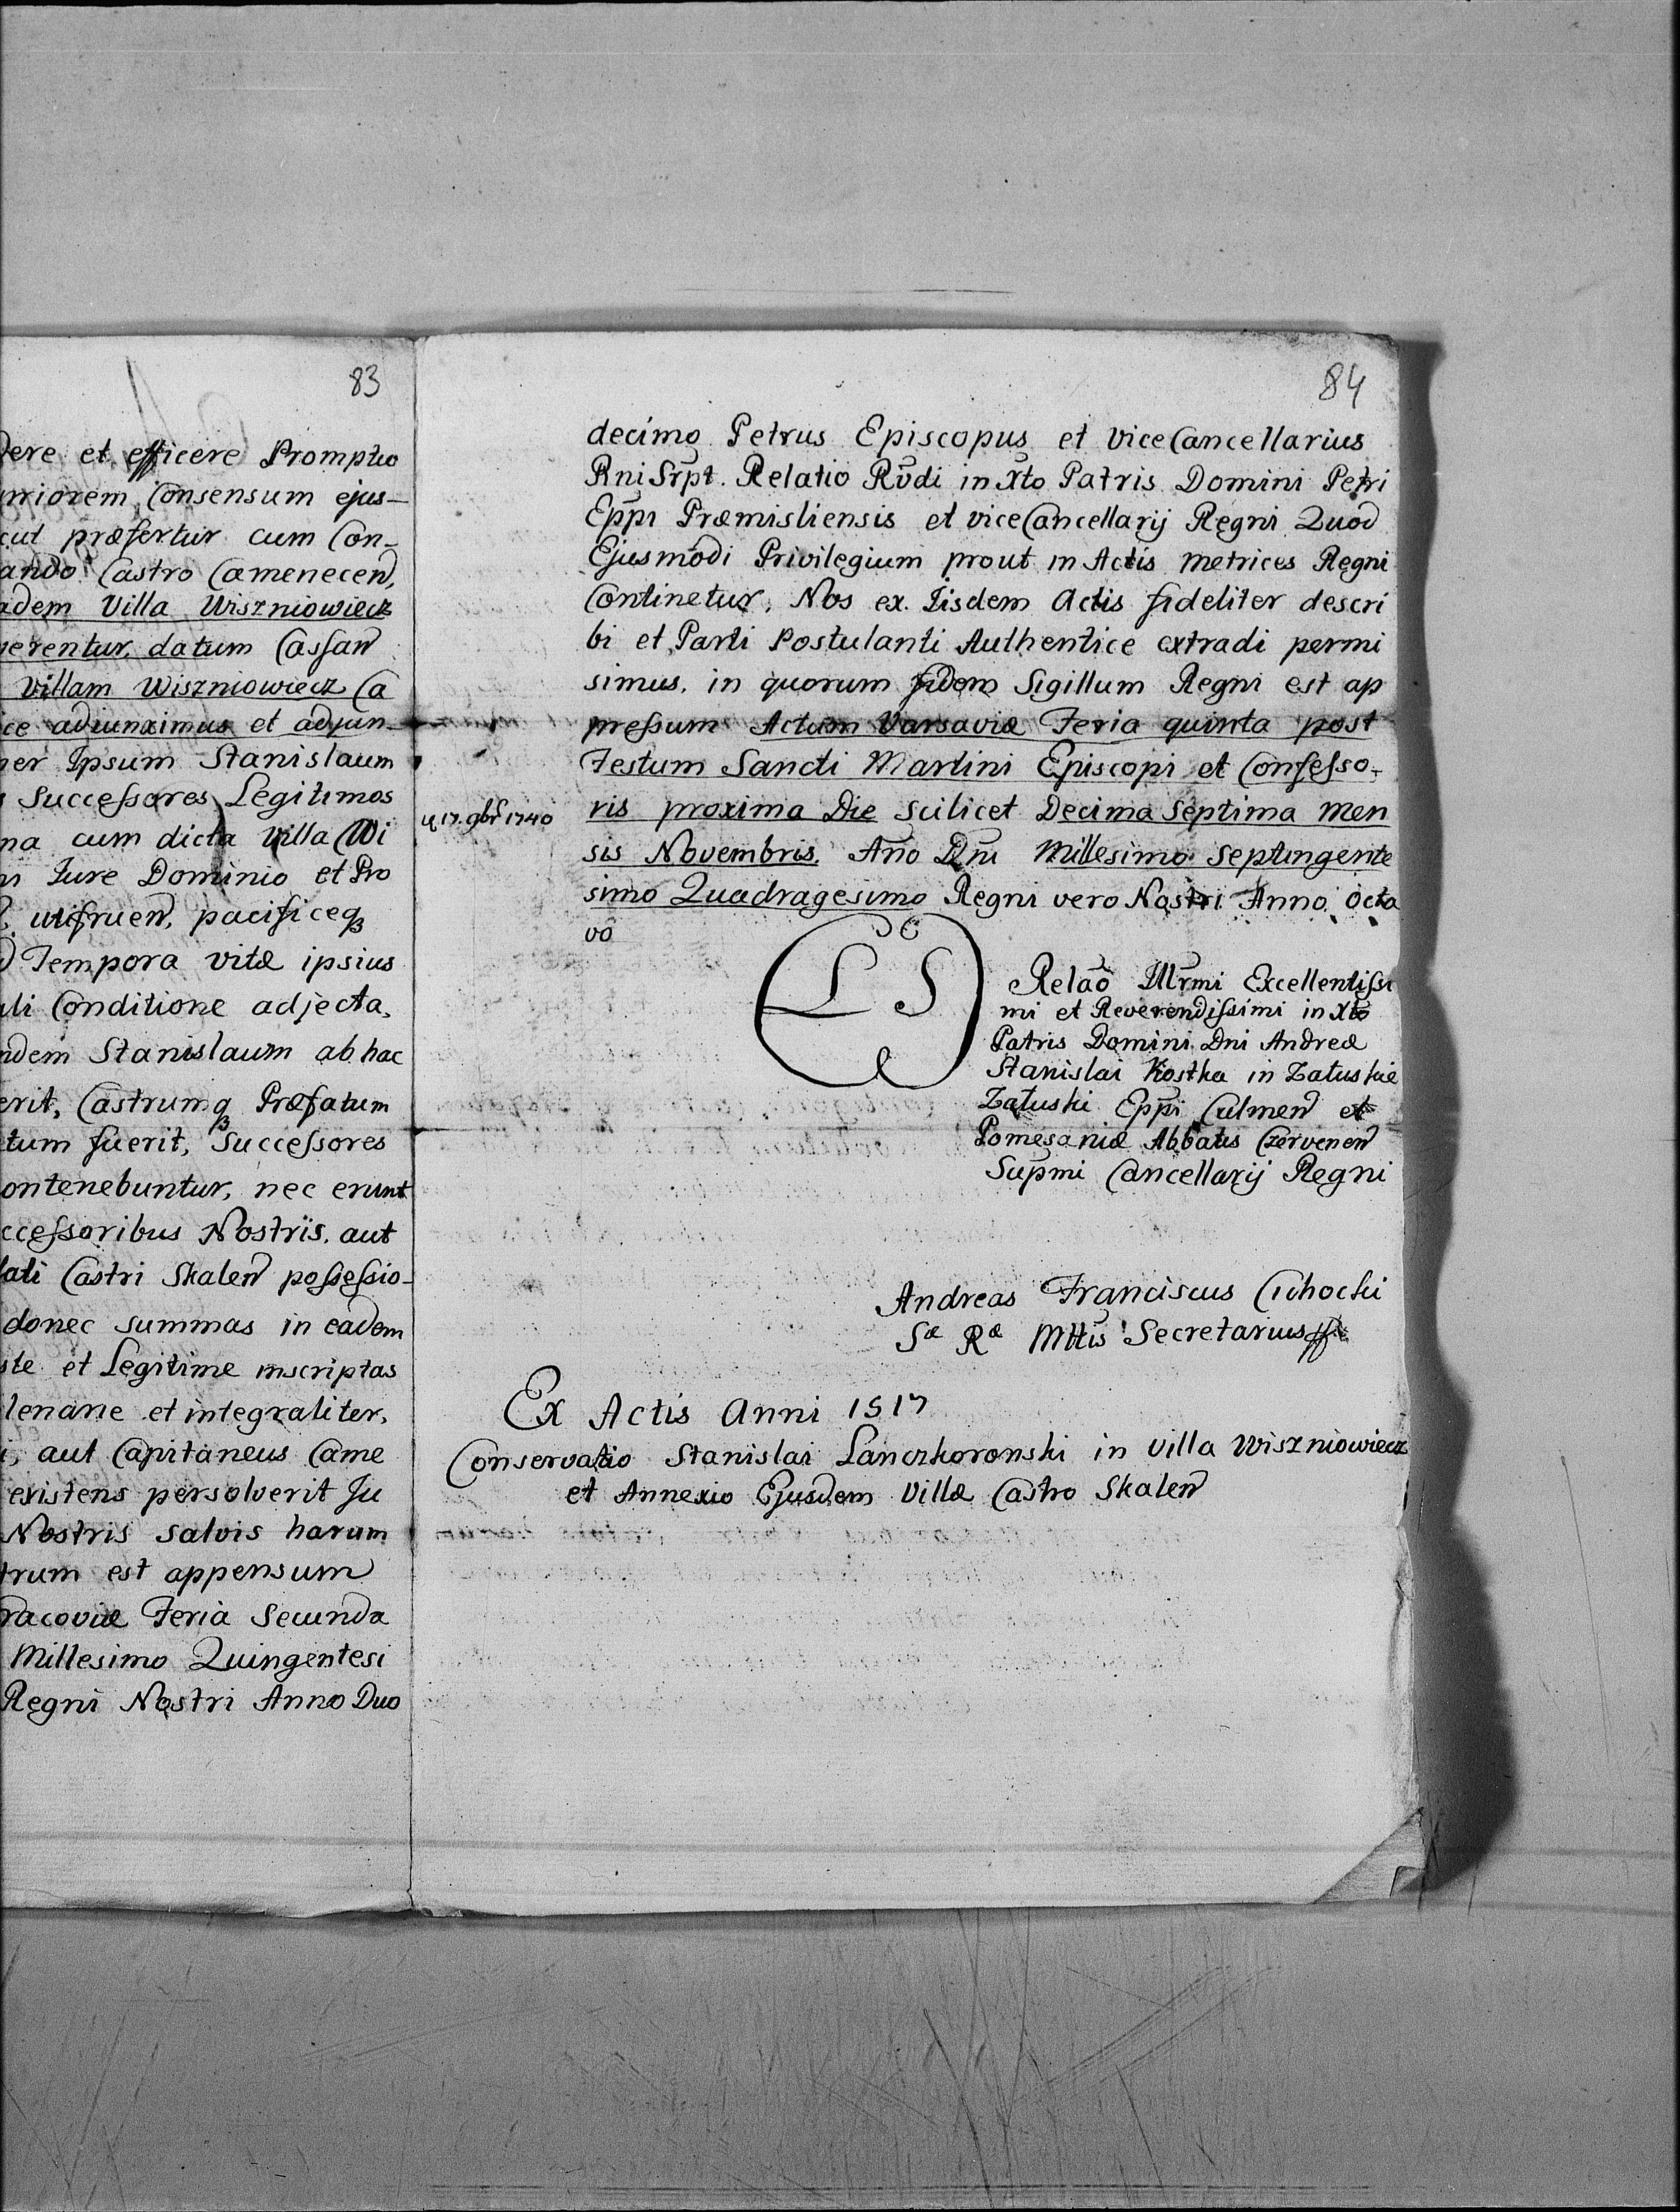 83
dere et efficere Promptio
consensum ejus-
præfertur cum Con-
Castro Camenecen,
Villa Wiszniowiecz
datum Cassan
Villam Wiszniowiecz Ca
adiunximus et adjun-
Ipsum Stanislaum
Successores Legitimos
na cum dicta Villa Wi
Jure Dominio et Pro
utifruen, pacificeq3
Tempora vitæ ipsius
Conditione adjecta,
Stanislaum ab hac
Castrumq3 Præfatum
fuerit, Successores
nec erunt
Nostris, aut
Castri Skalen possessio-
donec summas in eadem
et Legitime inscriptas
et integraliter,
aut Capitaneus Came
existens persolverit Ju
Nostris salvis harum
est appensum
Feria Secunda
Millesimo Quingentesi
Regni Nostri Anno Duo
84
decimo Petrus Episcopus et ViceCancellarius
Rni Srpt. Relatio Rv̄di in Xto Patris Domini Petri
Epp̄i Præmisliensis et viceCancellarij Regni Quod
Ejusmodi Privilegium prout in Actis metrices Regni
Continetur, Nos ex Iisdem Actis fideliter descri
bi et Parti Postulanti Authentice extradi permi
simus, in quorum fidem Sigillum Regni est ap
pressum Actum Varsaviæ Feria quinta post
Festum Sancti Martini Episcopi et Confesso-
ris proxima Die scilicet Decima Septima Men
17. 9br 1740
sis Novembris. Año Dni Millesimo Septingente
simo Quadragesimo Regni vero Nostri Anno Octa
vo
L S
Relaō Illrmi Excellentissi
mi et Reverendissimi in Xto
Patris Domini Dni Andreæ
Stanislai Kostka in Zaluskie
Zaluski Epp̄i Culmen et
Pomesaniæ Abbatis Czervenen
Supmi Cancellarij Regni
Andreas Franciscus Cichocki
Sæ Ræ Mttis Secretarius
Ex Actis Anni 1517
Conservatio Stanislai Lanczkoronski in Villa Wiszniowiecz
et Annexio Ejusdem Villæ Castro Skalen